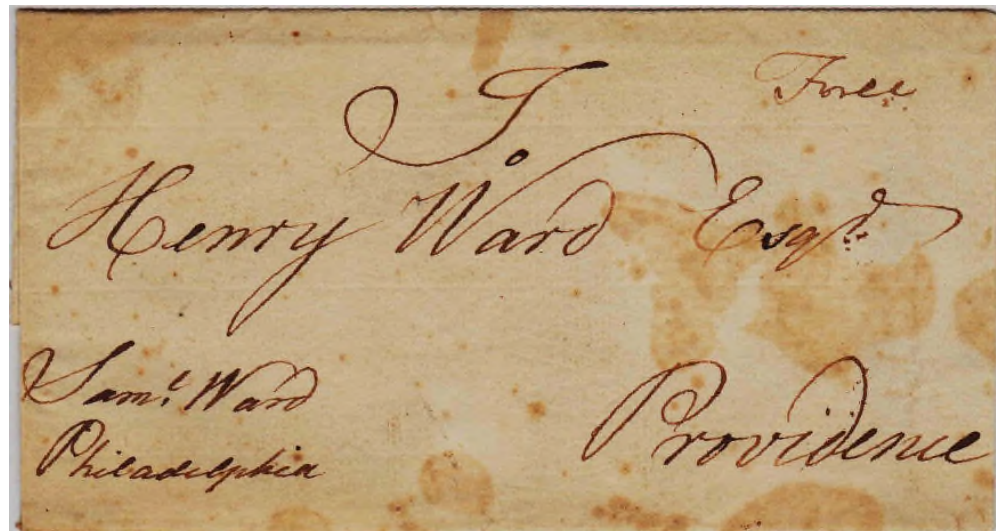 Free
To
Henry Ward Esqr.
Saml. Ward
Philadelphia
Providence